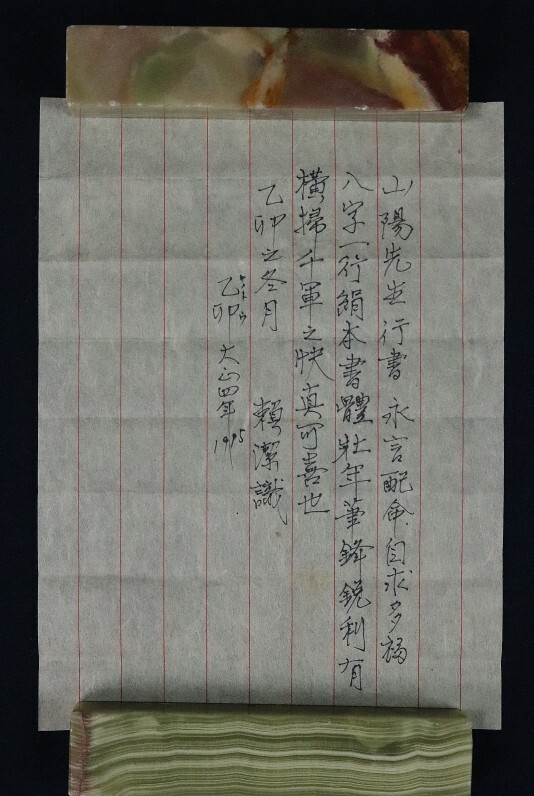 山陽先生行書永言配命自求多福
八字一行絹本書體壯年筆鋒鋭利有
橫掃千軍之快真可喜也
乙卯之冬月 賴潔識
乙卯 大正四年 1915